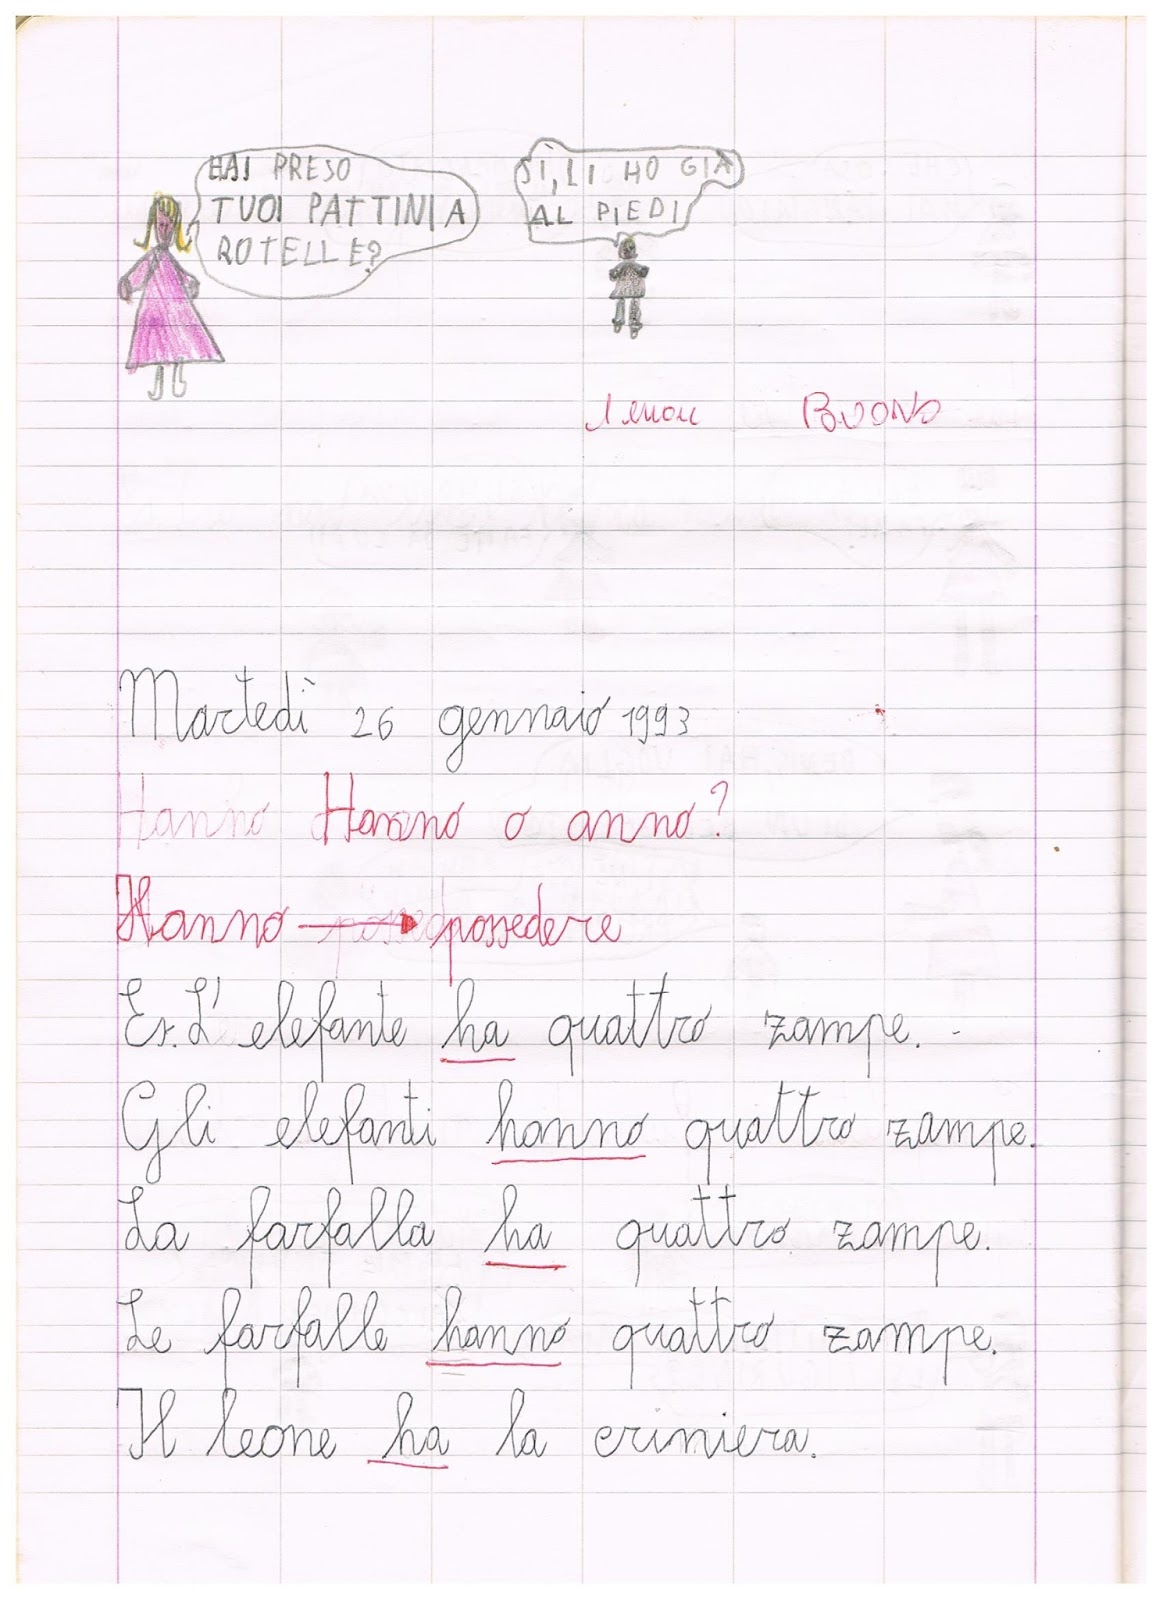 HAI PRESO
TUOI PATTINI A
ROTELLE?
SÌ, LI HO GIÀ
AL PIEDI
BUONO
Martedì 26 gennaio 1993
Hanno Hanno o anno?
Hanno possedere
Es. L'elefante ha quattro zampe.
Gli elefanti hanno quattro zampe.
La farfalla ha quattro zampe.
Le farfalle hanno quattro zampe.
Il leone ha la criniera.